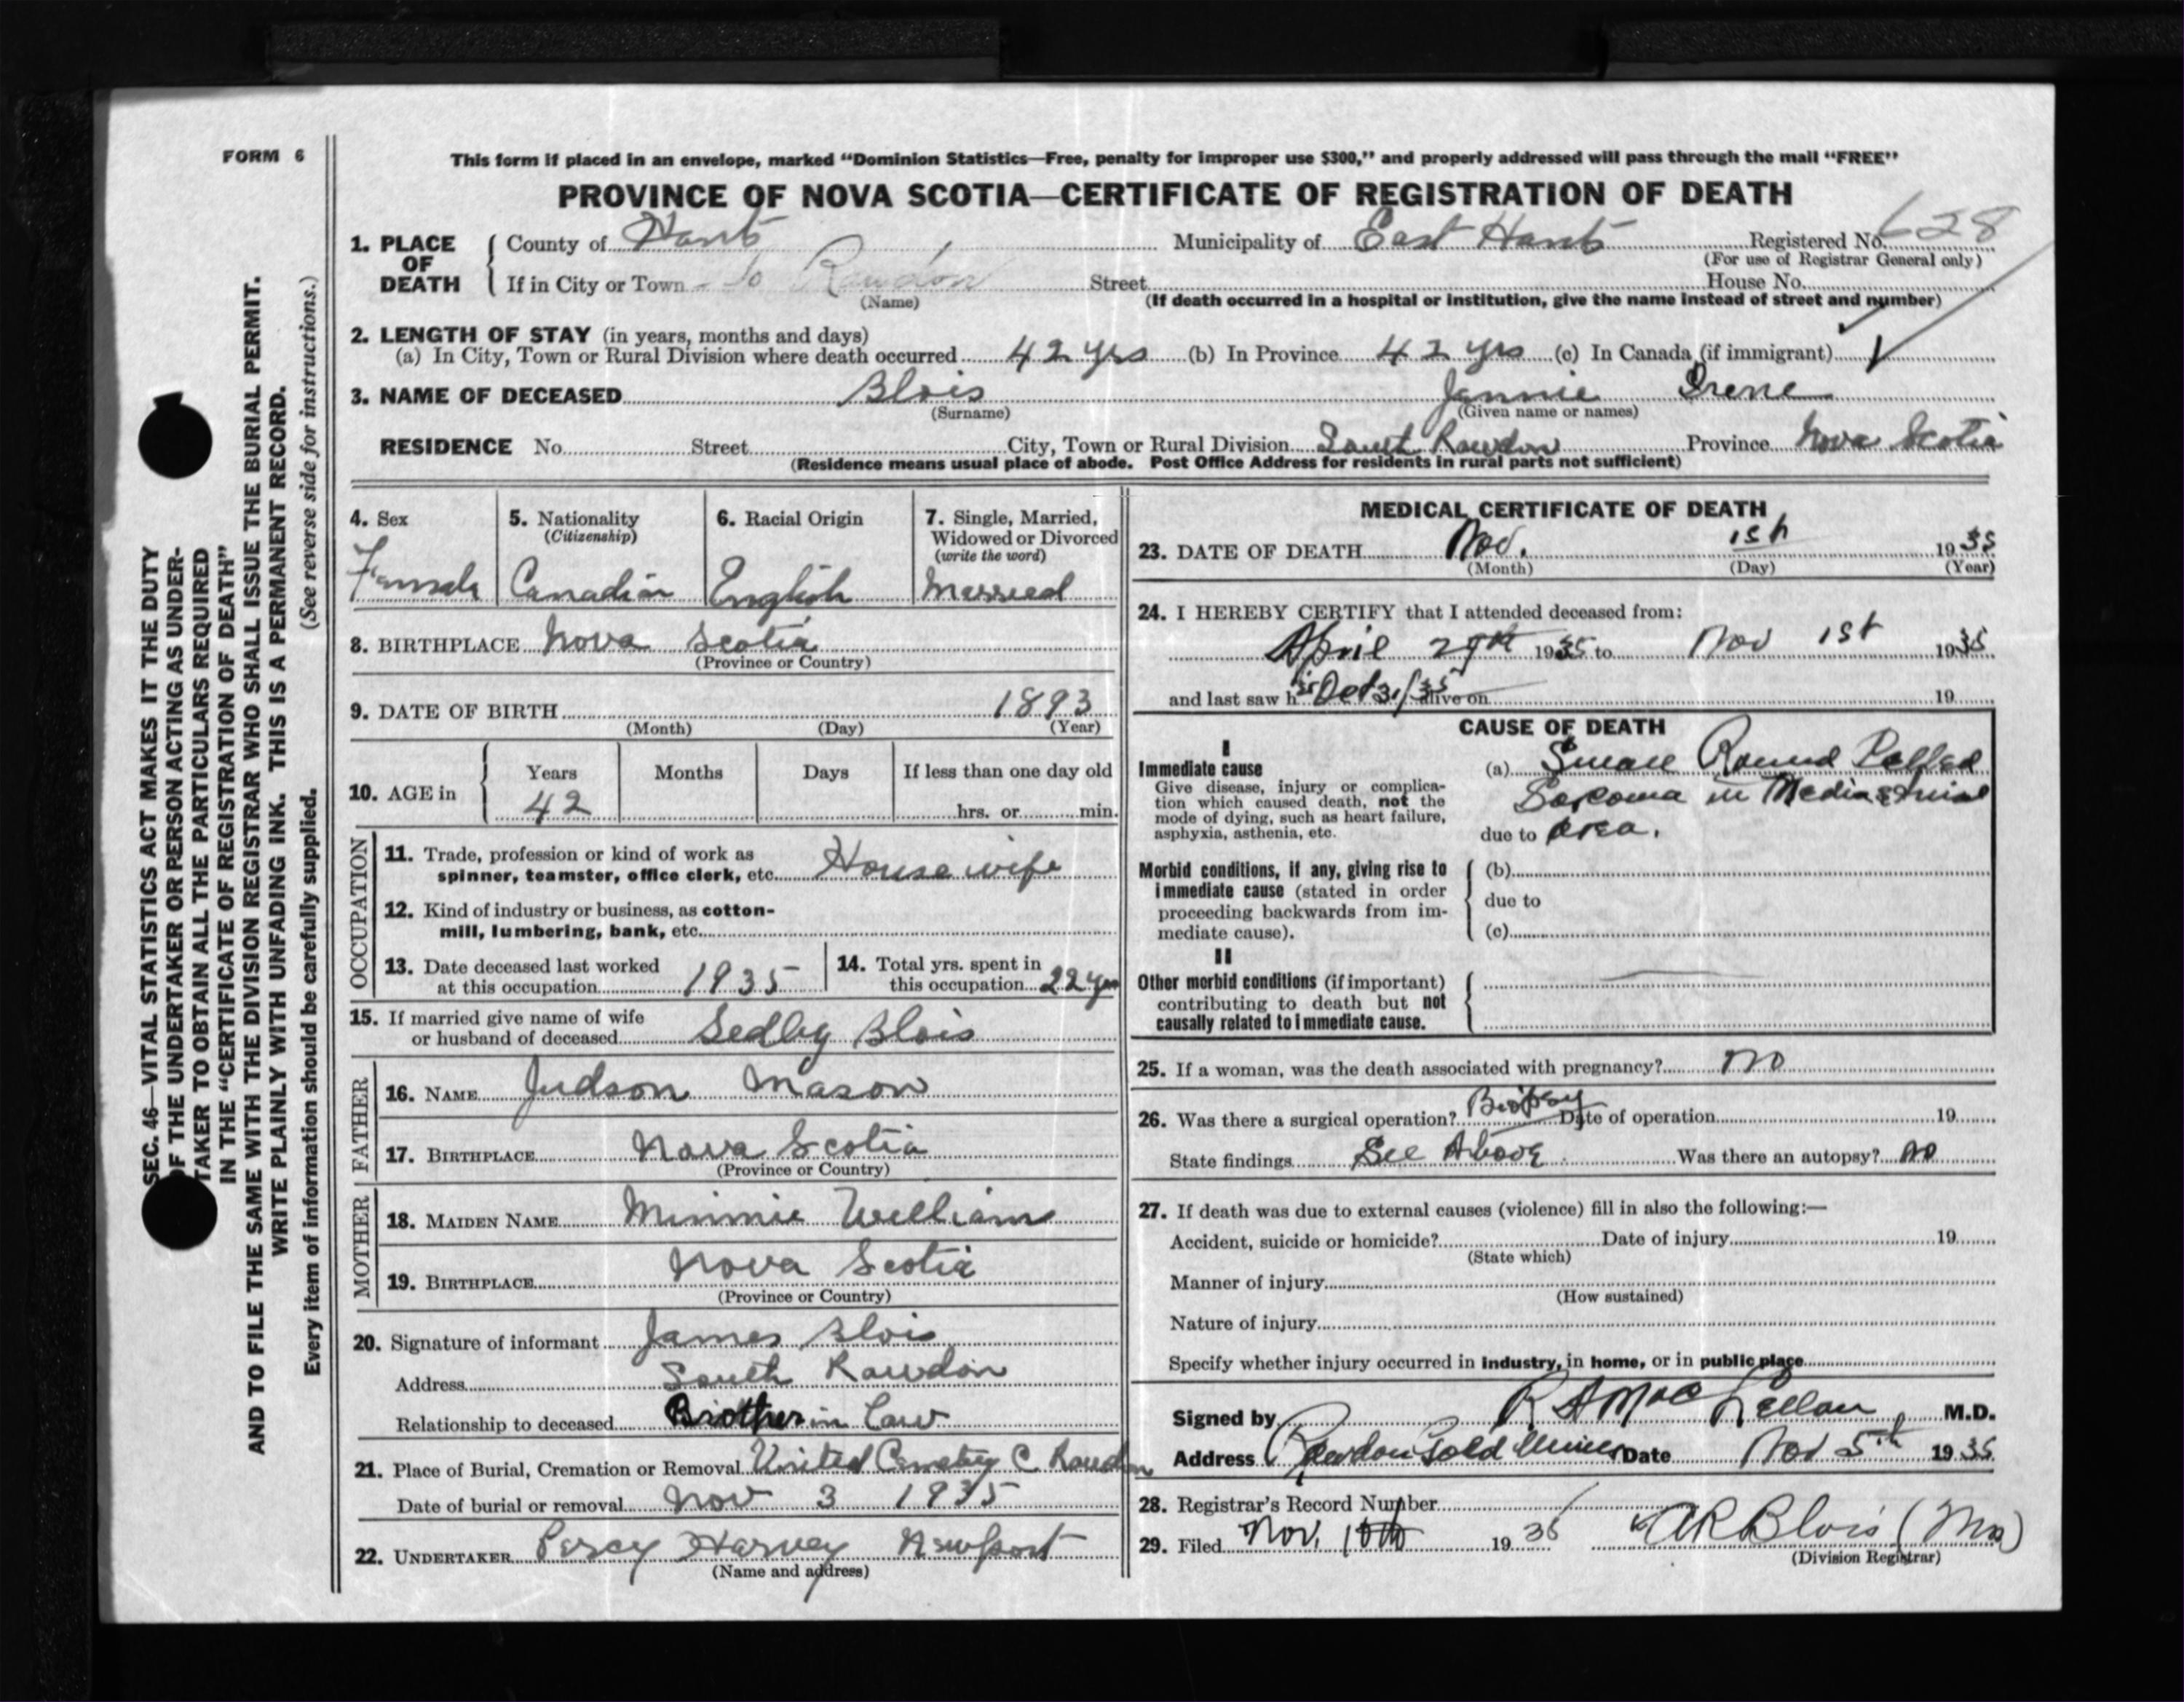 FORM 6
This form if placed in an envelope, marked “Dominion Statistics—Free, penalty for improper use $300,” and properly addressed will pass through the mail “FREE”
PROVINCE OF NOVA SCOTIA—CERTIFICATE OF REGISTRATION OF DEATH
1. PLACE OF DEATH County of Hants Municipality of East Hants Registered No. 628
(For use of Registrar General only)
If in City or Town So Rawdon Street House No.
(Name) (If death occurred in a hospital or institution, give the name instead of street and number)
2. LENGTH OF STAY (in years, months and days)
(a) In City, Town or Rural Division where death occurred 42 yrs (b) In Province 42 yrs (c) In Canada (if immigrant)
3. NAME OF DECEASED Blois Jennie Irene
(Surname) (Given name or names)
RESIDENCE No. Street City, Town or Rural Division South Rawdon Province Nova Scotia
(Residence means usual place of abode. Post Office Address for residents in rural parts not sufficient)
4. Sex Female
5. Nationality (Citizenship) Canadian
6. Racial Origin English
7. Single, Married, Widowed or Divorced (write the word) Married
8. BIRTHPLACE Nova Scotia
(Province or Country)
9. DATE OF BIRTH 1893
(Month) (Day) (Year)
10. AGE in Years Months Days If less than one day old
42 hrs. or min.
OCCUPATION
11. Trade, profession or kind of work as
spinner, teamster, office clerk, etc. House wife
12. Kind of industry or business, as cotton-
mill, lumbering, bank, etc.
13. Date deceased last worked
at this occupation 1935
14. Total yrs. spent in
this occupation 22 yrs
15. If married give name of wife
or husband of deceased Sedley Blois
FATHER
16. NAME Judson Mason
17. BIRTHPLACE Nova Scotia
(Province or Country)
MOTHER
18. MAIDEN NAME Minnie Williams
19. BIRTHPLACE Nova Scotia
(Province or Country)
20. Signature of informant James Blois
Address South Rawdon
Relationship to deceased Brother in Law
21. Place of Burial, Cremation or Removal United Cemetery C. Rawdon
Date of burial or removal Nov 3 1935
22. UNDERTAKER Percy Harvey Newport
(Name and address)
MEDICAL CERTIFICATE OF DEATH
23. DATE OF DEATH Nov. 1st 1935
(Month) (Day) (Year)
24. I HEREBY CERTIFY that I attended deceased from:
April 29th 1935 to Nov 1st 1935
and last saw her Oct 31/35 alive on 19
CAUSE OF DEATH
I
Immediate cause
Give disease, injury or complica-
tion which caused death, not the
mode of dying, such as heart failure,
asphyxia, asthenia, etc.
(a) Small Round Celled
Sarcoma in Mediastinal
due to area.
Morbid conditions, if any, giving rise to
immediate cause (stated in order
proceeding backwards from im-
mediate cause).
(b)
due to
(c)
II
Other morbid conditions (if important)
contributing to death but not
causally related to immediate cause.
25. If a woman, was the death associated with pregnancy? no
26. Was there a surgical operation? Biopsy Date of operation 19
State findings See Above Was there an autopsy? no
27. If death was due to external causes (violence) fill in also the following:—
Accident, suicide or homicide? Date of injury 19
(State which)
Manner of injury
(How sustained)
Nature of injury
Specify whether injury occurred in industry, in home, or in public place
Signed by R A MacLellan M.D.
Address Rawdon Gold Mines Date Nov 5th 1935
28. Registrar's Record Number
29. Filed Nov. 10th 1935 A R Blois (Mrs)
(Division Registrar)
SEC. 46—VITAL STATISTICS ACT MAKES IT THE DUTY
OF THE UNDERTAKER OR PERSON ACTING AS UNDER-
TAKER TO OBTAIN ALL THE PARTICULARS REQUIRED
IN THE “CERTIFICATE OF REGISTRATION OF DEATH”
AND TO FILE THE SAME WITH THE DIVISION REGISTRAR WHO SHALL ISSUE THE BURIAL PERMIT.
WRITE PLAINLY WITH UNFADING INK. THIS IS A PERMANENT RECORD.
Every item of information should be carefully supplied. (See reverse side for instructions.)